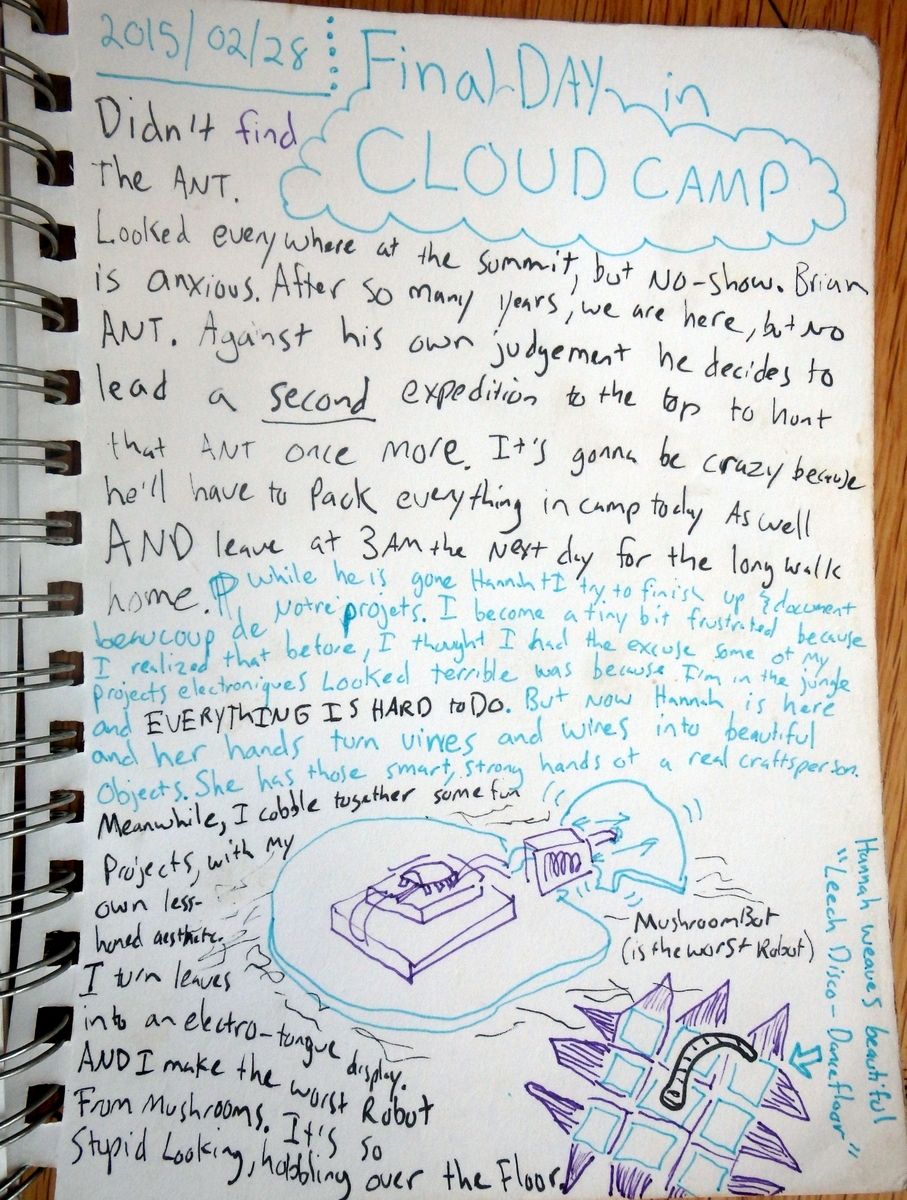 2015/02/28
Final DAY in
CLOUD CAMP
Didn't find
The ANT.
Looked everywhere at the summit, but NO-show. Brian
is anxious. After so many years, we are here, but NO
ANT. Against his own judgement he decides to
lead a second expedition to the top to hunt
that ANT once more. It's gonna be crazy because
he'll have to Pack everything in camp today As well
AND leave at 3AM the Next day for the long walk
home. While he is gone Hannah + I try to finish up & document
beaucoup de Notre projets. I become a tiny bit frustrated because
I realized that before, I thought I had the excuse some of my
projects electroniques Looked terrible was because I'm in the jungle
and EVERYTHING IS HARD to DO. But now Hannah is here
and her hands turn vines and wires into beautiful
Objects. She has those smart, strong hands of a real craftsperson.
Meanwhile, I cobble together some fun
Projects, with my
own less-
honed aesthetic.
I turn leaves
into an electro-tongue display.
AND I make the worst Robot
From Mushrooms. It's so
Stupid Looking, hobbling over the Floor.
MushroomBot
(is the worst Robot)
Hannah weaves beautiful
"Leech Disco-Dancefloor"